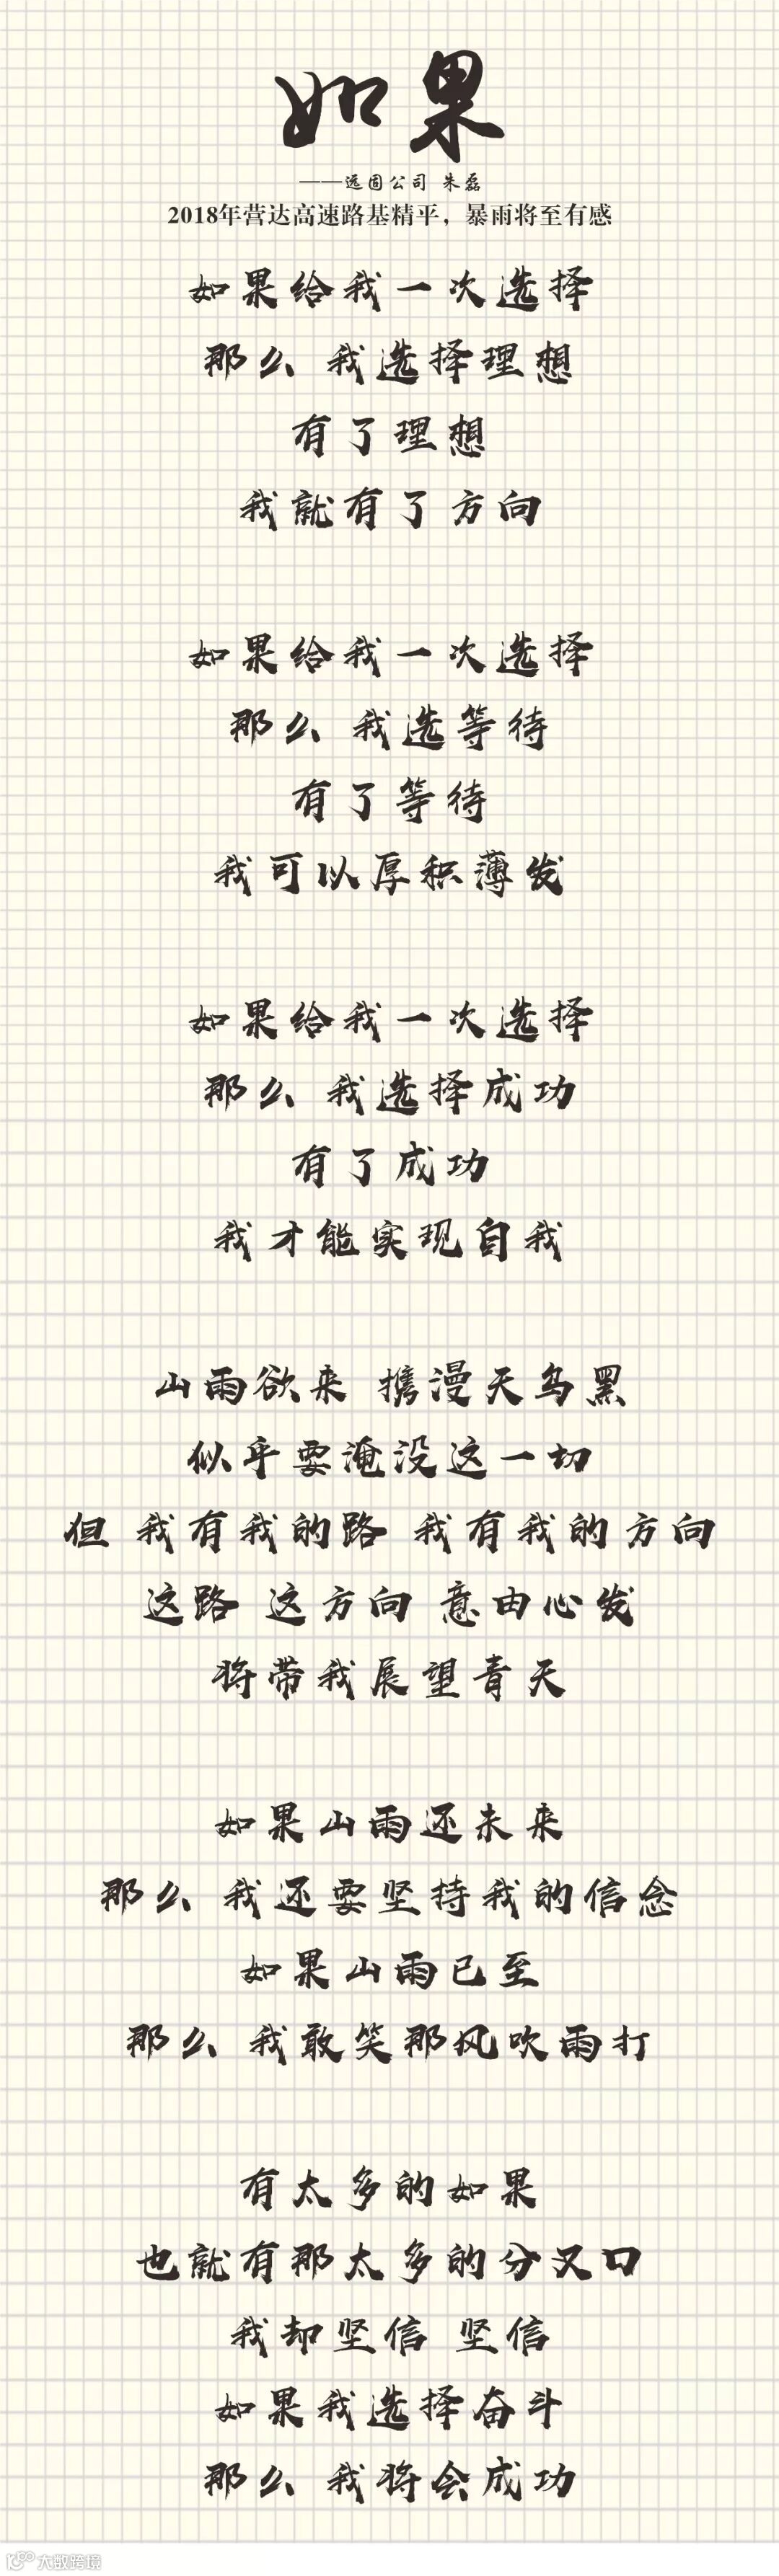 如果
——远固公司 朱磊
2018年营达高速路基精平，暴雨将至有感
如果给我一次选择
那么 我选择理想
有了理想
我就有了方向
如果给我一次选择
那么 我选等待
有了等待
我可以厚积薄发
如果给我一次选择
那么 我选择成功
有了成功
我才能实现自我
山雨欲来 携漫天乌黑
似乎要淹没这一切
但 我有我的路 我有我的方向
这路 这方向 意由心发
将带我展望青天
如果山雨还未来
那么 我还要坚持我的信念
如果山雨已至
那么 我敢笑那风吹雨打
有太多的如果
也就有那太多的分叉口
我却坚信 坚信
如果我选择奋斗
那么 我将会成功
大数跨境